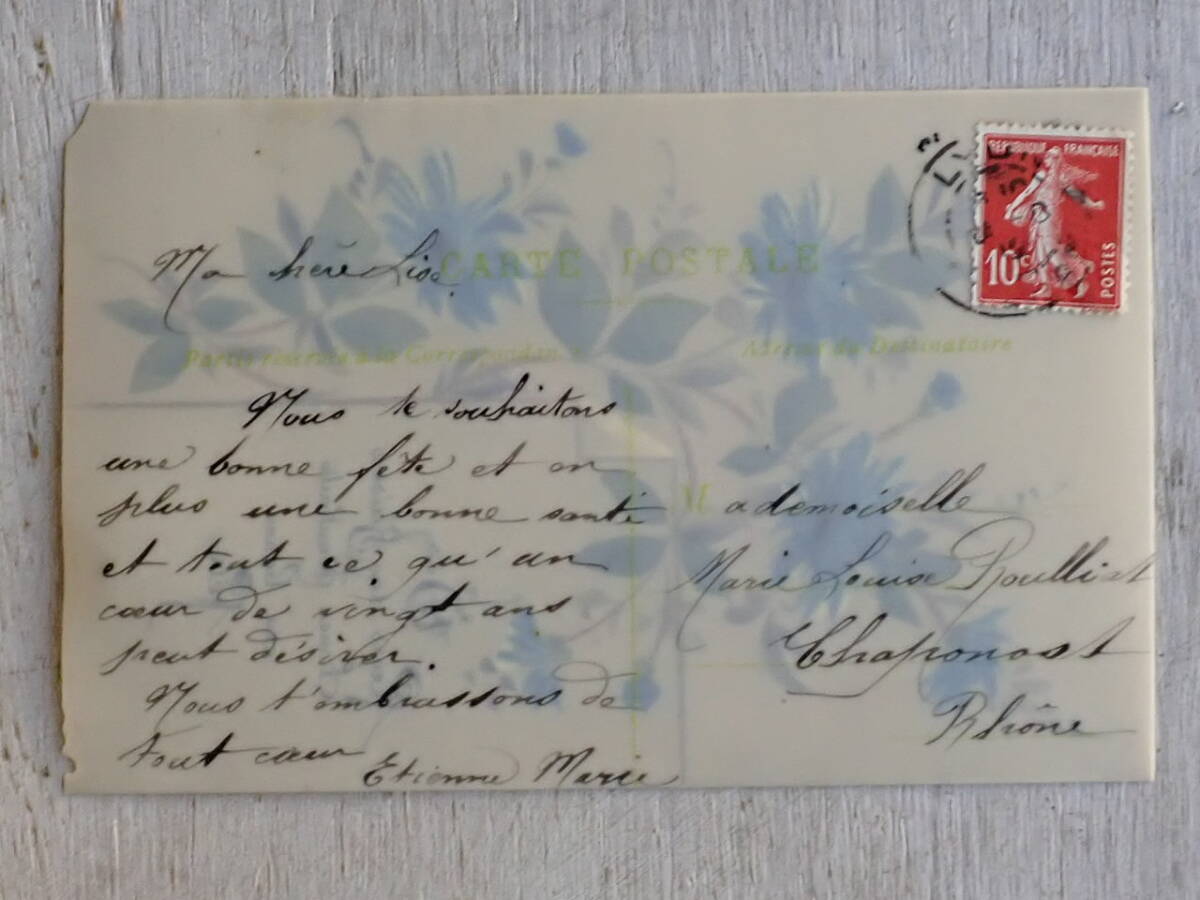 CARTE POSTALE
Partie réservée à la Correspondance
Adresse du Destinataire
REPUBLIQUE FRANÇAISE
10c
POSTES
Ma chère Lise
Nous te souhaitons
une bonne fête et en
plus une bonne santé
et tout ce qu'un
cœur de vingt ans
peut désirer.
Nous t'embrassons de
tout cœur
Etienne Marie
Mademoiselle
Marie Louise
Chaponost
Rhône